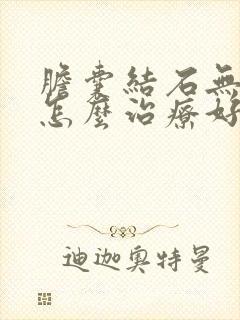 膽囊結石無
怎麼治療好
迪迦奧特曼